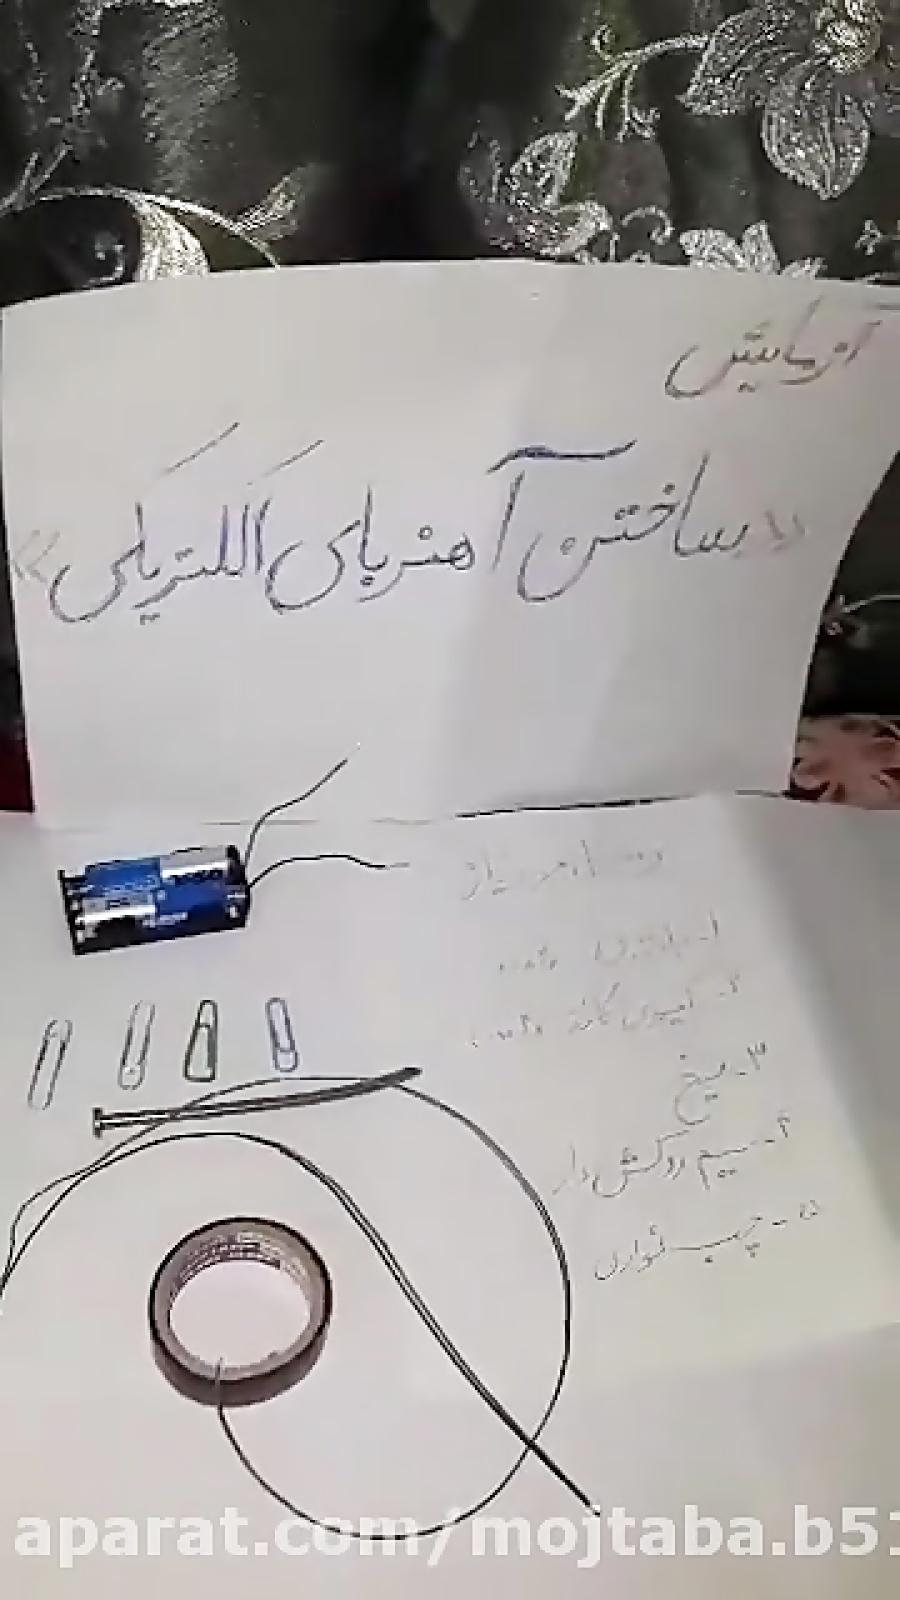 آزمایش
«ساختن آهنربای الکتریکی»
وسایل مورد نیاز
۱- باتری
۲- گیره‌ی کاغذ
۳- میخ
۴- سیم روکش دار
۵- چسب نواری
aparat.com/mojtaba.b51